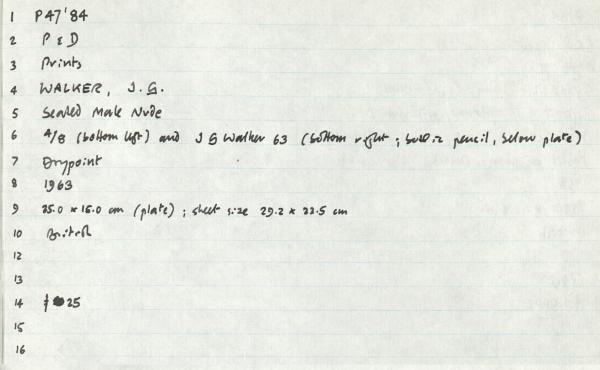 1 P47'84
2 P & D
3 Prints
4 WALKER, J.G.
5 Seated Male Nude
6 4/8 (bottom left) and J G Walker 63 (bottom right; both in pencil, below plate)
7 Drypoint
8 1963
9 25.0 x 15.0 cm (plate); sheet size 29.2 x 22.5 cm
10 British
12
13
14 25
15
16